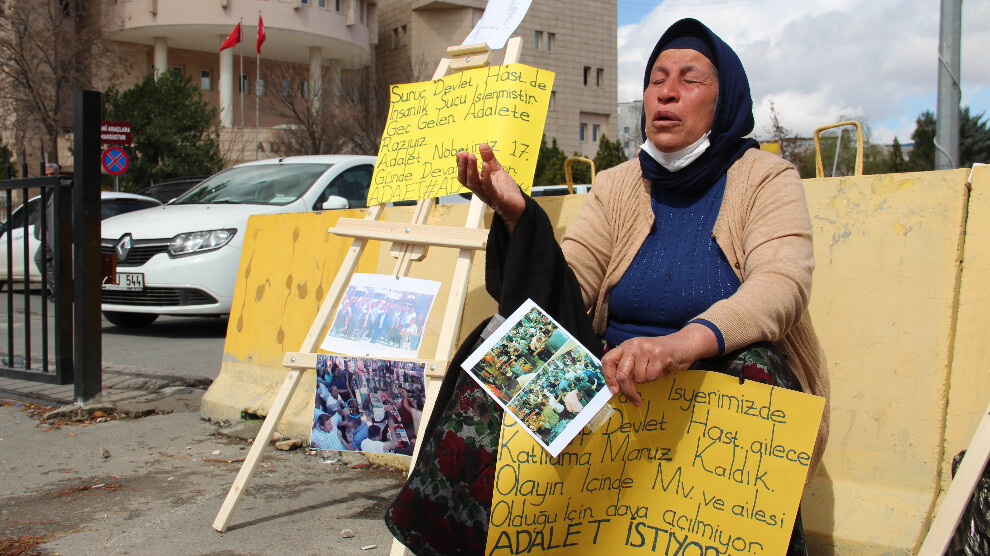 Suruç Devlet Hast.de
İnsanlık Suçu İşlenmiştir.
Geç Gelen Adalete
Razıyız
Adalet Nöbetimiz 17.
Günde Devam
ADALET#ADA
ARAÇLARI
544
İşyerimizde
Devlet Hast. ailece
Katliama Maruz Kaldık.
Olayın İçinde Mv. ve ailesi
Olduğu İçin dava açılmıyor.
ADALET İSTİYOR